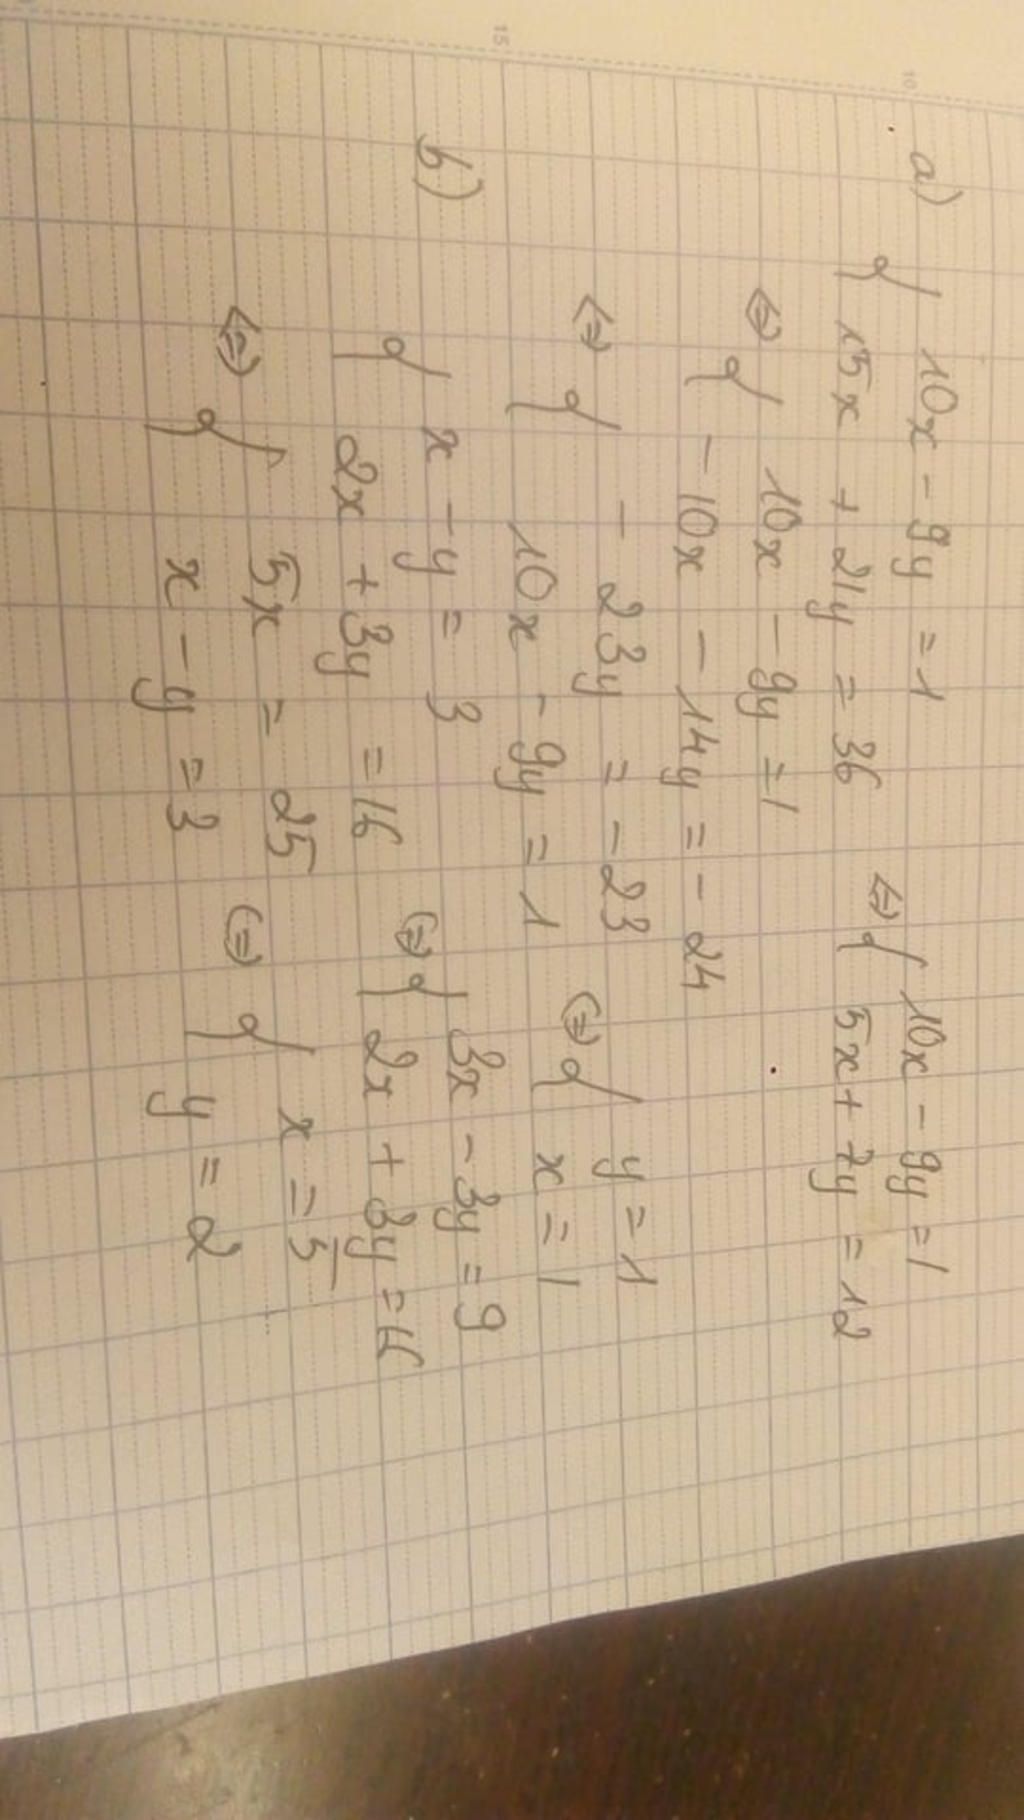 a) { 10x - 9y = 1
15x + 21y = 36
⇔ { 10x - 9y = 1
5x + 7y = 12
⇔ { 10x - 9y = 1
- 10x - 14y = - 24
⇔ { - 23y = - 23
10x - 9y = 1
⇔ { y = 1
x = 1
b) { x - y = 3
2x + 3y = 16
⇔ { 3x - 3y = 9
2x + 3y = 16
⇔ { 5x = 25
x - y = 3
⇔ { x = 5
y = 2
10
15